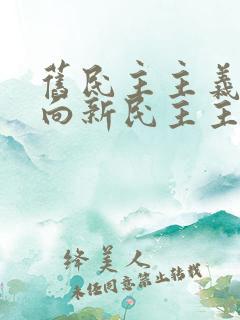 舊民主主義
向新民主主
绛美人
未经同意禁止转载